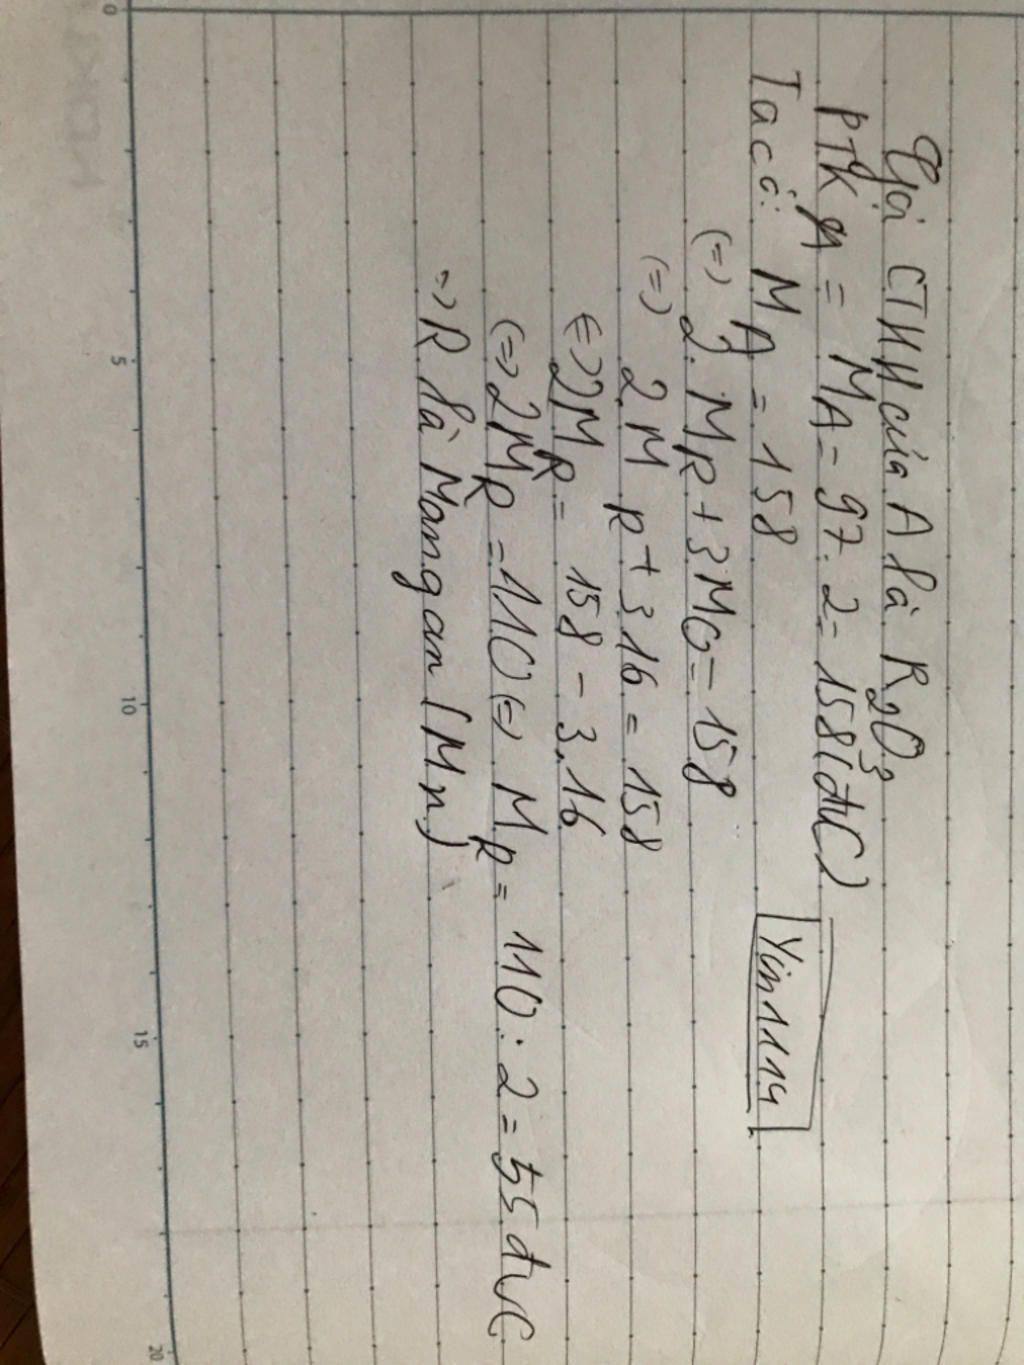 Gọi CTHH của A là R2O3
PTK A = MA = 97.2 = 158(đvC)
Ta có: MA = 158
(=) 2.MR + 3MO = 158
(=) 2.M R + 3.16 = 158
(=) 2MR = 158 - 3.16
(=) 2MR = 110 (=) MR = 110 : 2 = 55 đvC
=> R là Mangan (Mn)
Yin1114
0
5
10
15
20